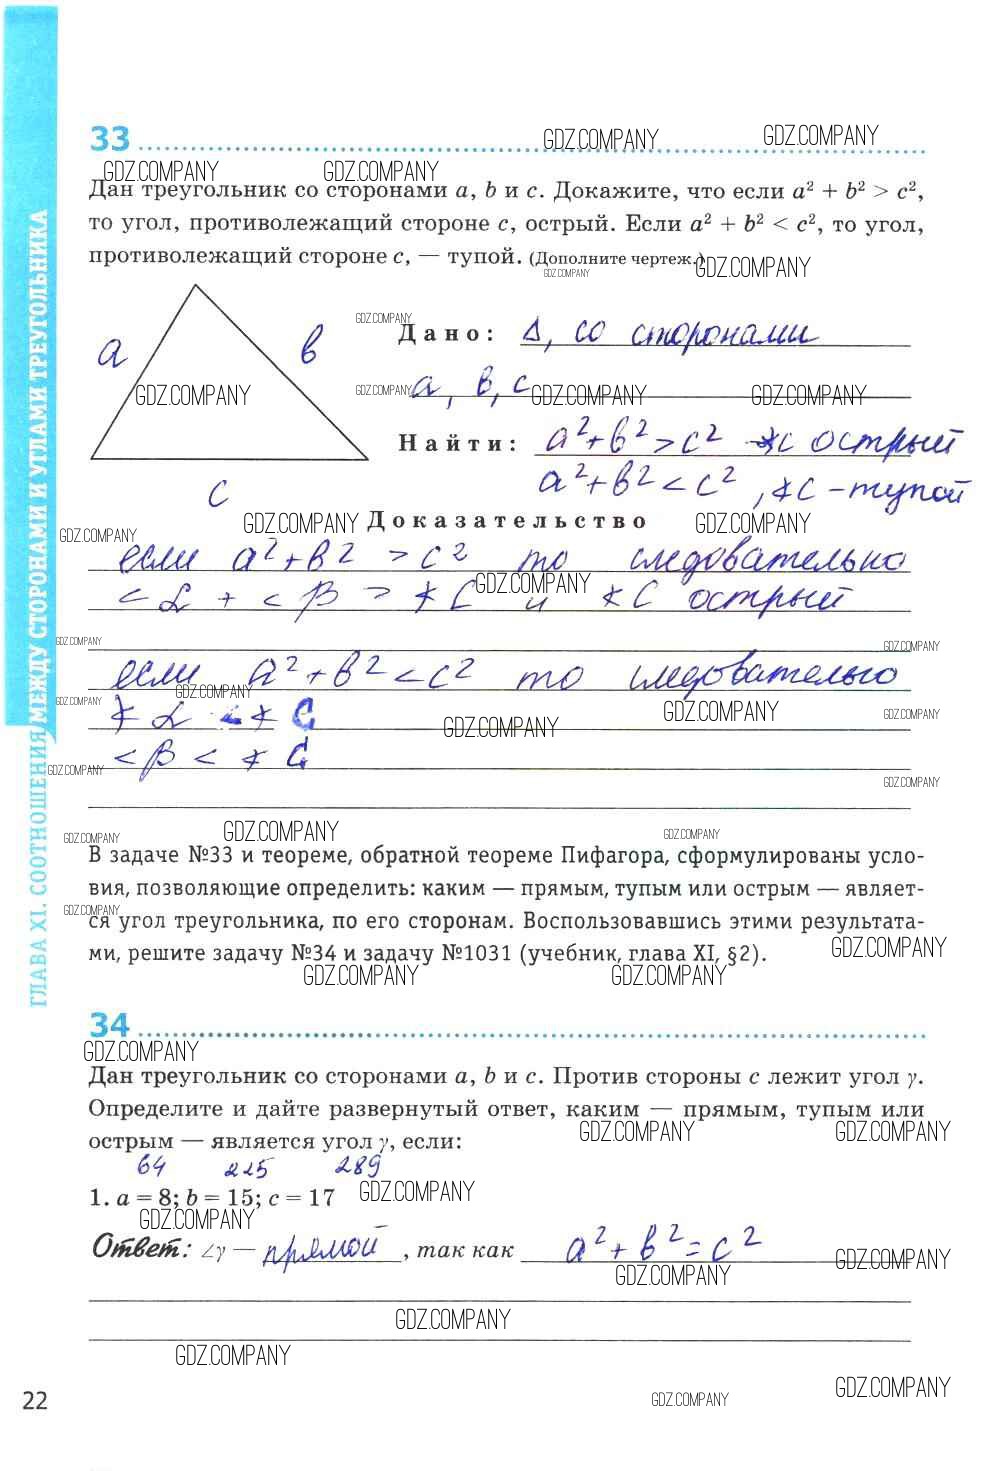 33
GDZ.COMPANY GDZ.COMPANY
GDZ.COMPANY GDZ.COMPANY
Дан треугольник со сторонами a, b и c. Докажите, что если a² + b² > c²,
то угол, противолежащий стороне c, острый. Если a² + b² < c², то угол,
противолежащий стороне c, — тупой. (Дополните чертеж.)
GDZ.COMPANY GDZ.COMPANY
GDZ.COMPANY
a в Дано: Δ, со сторонами
GDZ.COMPANY GDZ.COMPANY GDZ.COMPANY GDZ.COMPANY
а, в, с
Найти: a²+b²>c² ∢C острый
a²+b²<c², ∢C – тупой
c
GDZ.COMPANY GDZ.COMPANY Доказательство GDZ.COMPANY
если a²+b² > c² то следовательно
GDZ.COMPANY
<α + <β > ∢C и ∢C острый
GDZ.COMPANY GDZ.COMPANY
если a²+b² < c² то следователью
GDZ.COMPANY GDZ.COMPANY GDZ.COMPANY GDZ.COMPANY
∢α < ∢C
GDZ.COMPANY
<β < ∢C
GDZ.COMPANY GDZ.COMPANY
GDZ.COMPANY GDZ.COMPANY GDZ.COMPANY
В задаче №33 и теореме, обратной теореме Пифагора, сформулированы усло-
вия, позволяющие определить: каким — прямым, тупым или острым — являет-
GDZ.COMPANY
ся угол треугольника, по его сторонам. Воспользовавшись этими результата-
ми, решите задачу №34 и задачу №1031 (учебник, глава XI, §2).
GDZ.COMPANY
GDZ.COMPANY GDZ.COMPANY
34
GDZ.COMPANY
Дан треугольник со сторонами a, b и c. Против стороны c лежит угол γ.
Определите и дайте развернутый ответ, каким — прямым, тупым или
GDZ.COMPANY GDZ.COMPANY
острым — является угол γ, если:
64 225 289
1. a = 8; b = 15; c = 17 GDZ.COMPANY
GDZ.COMPANY
Ответ: ∠γ — прямой, так как a²+b²=c²
GDZ.COMPANY
GDZ.COMPANY
GDZ.COMPANY
GDZ.COMPANY
GDZ.COMPANY
GDZ.COMPANY
22
ГЛАВА XI. СООТНОШЕНИЯ МЕЖДУ СТОРОНАМИ И УГЛАМИ ТРЕУГОЛЬНИКА